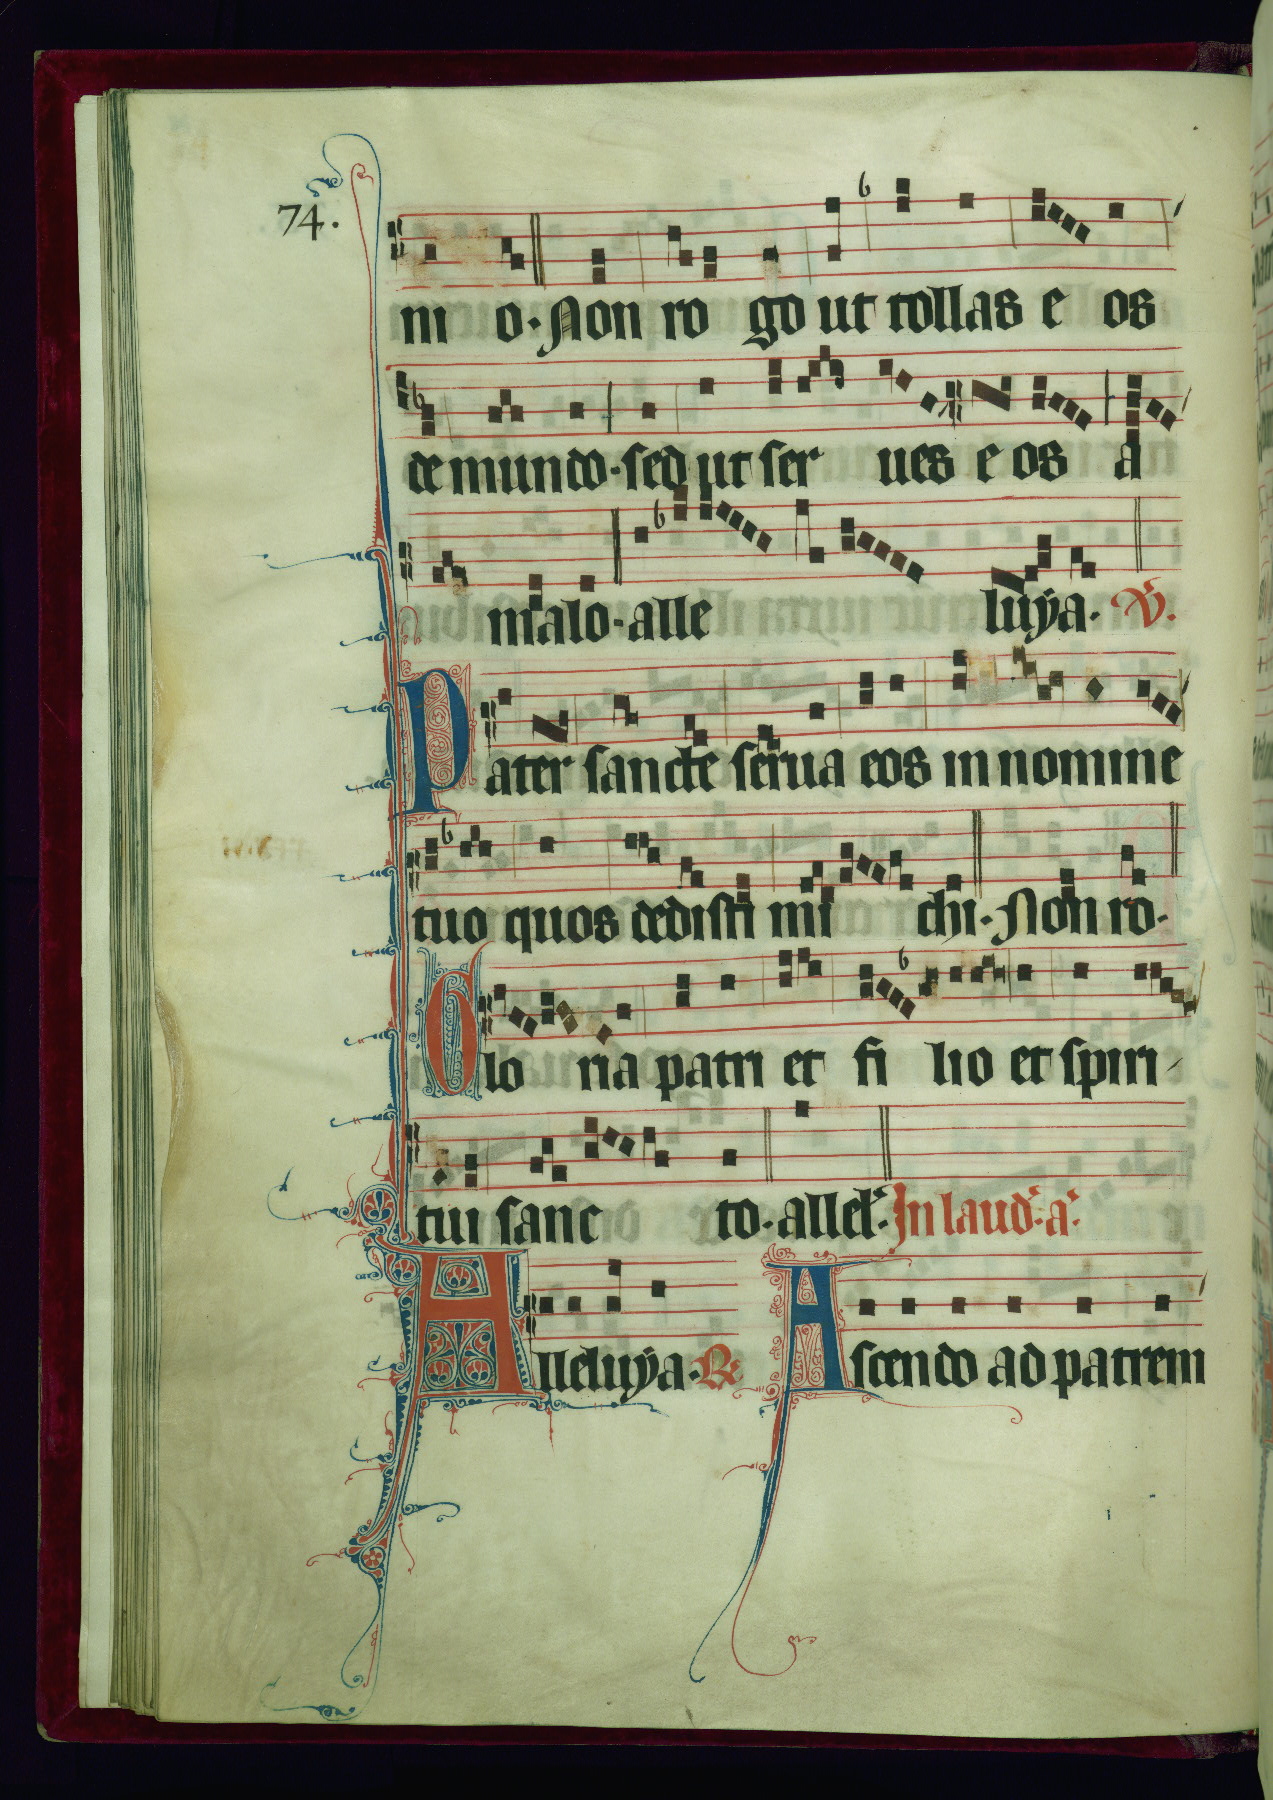 74.
ni o · Non ro go ut tollas e os
de mundo · sed ut ser ues e os a
malo · alle luÿa · V̄.
Pater sancte serua eos in nomine
tuo quos dedisti mi chi · Non ro ·
Glo ria patri et fi lio et spiri
tui sanc to · allel̄ · In laud̄ · a ·
Alleluÿa · R Ascendo ad patrem